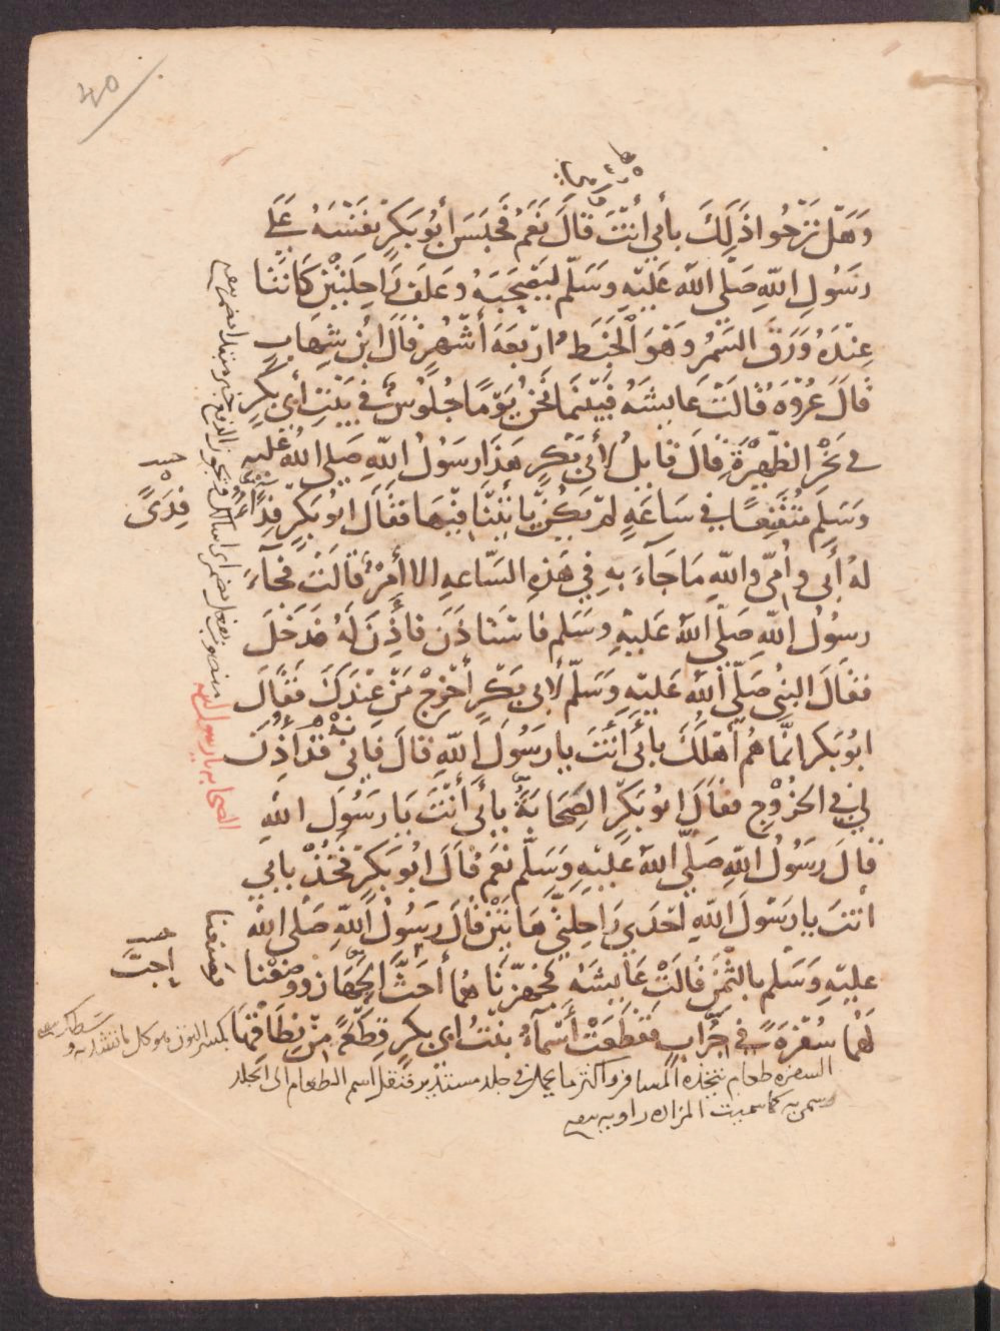 وَهَلْ تَرْجُوا ذَلِكَ بأبي أنْتَ قَالَ نَعَمْ فَحَبَسَ أَبُو بَكَرٍ نَفْسَهُ عَلَى
رَسُولِ اللّهِ صَلَّى اللّهُ عَلَيْهِ وَسَلَّم لِيَصْحَبَهُ وَعَلَفَ رَاحِلَتَيْنِ كَانَتَا
عِنْدَهُ وَرَقَ السَّمُرِ وَهْوَ الْخَبَطُ ارْبَعَةَ أَشْهُرٍ قَالَ ابْن شِهَابٍ
قَالَ عُرْوَةُ قَالَتْ عَايِشَهُ فَبَيْنَمَا نَحْنُ يَوْمًا جُلُوسٌ في بَيْتِ أبي بَكْرٍ
في نَحْرِ الظَّهِيْرَةِ قَالَ قَايِلٌ لأبي بَكْرٍ هَذَا رسُولُ اللّهِ صَلى اللّهُ عَليهِ
وَسَلم مُتَقَنِّعًا في سَاعَةٍ لَمْ يَكُنْ يَاتِيْنَا فِيْهَا فَقَالَ ابُو بَكْرٍ فِدًا
لهُ أبى وأمّى واللّهِ مَا جَاءَ بهِ في هَذِهِ السَّاعهِ الا أَمْرٌ قَالَتْ فَجَاءَ
رسُولُ اللّهِ صَلّى اللّهُ عَليْهِ وسَلم فاسْتَاذَنَ فَاذِنَ لَهُ فَدَخَلَ
فَقَالَ النبىُّ صَلّى اللّهُ عَليْهِ وَسَلَّم لأبى بَكْرٍ أخْرِجْ مَنْ عِنْدَكَ فَقَالَ
ابُو بَكر انَّما هُم أهْلُكَ بأبى أنْتَ يا رسُولَ اللّهِ قالَ فَإنّى قدْ أُذِنَ
لى في الخُرُوْجِ فقالَ ابُو بَكْرٍ الصَّحَابَةُ بأبى أنْتَ يَا رسُولَ اللّهِ
قَالَ رسُولُ اللّهِ صَلّى اللّهُ عَليْهِ وَسَلم نَعَمْ قَالَ ابُو بَكَرٍ فَخُذْ بابى
انْتَ يا رسُولَ اللّهِ احْدَى رَاحِلَتَيَّ هَاتَيْنِ قَالَ رسُولُ اللّهِ صَلّى اللّهُ
عليْهِ وَسَلم بالثَّمَنِ قَالَتْ عَايِشَهُ فَجَهَّزْنَا هُمَا أحَثَّ الجَهَازِ وَوَضَعْنَا
لَهُمَا سُفْرَةً في جِرَابٍ فَقَطَعَتْ أسْمَاءُ بِنْتُ ابى بكرٍ قِطْعَةً مِنْ نِطَاقِهَا
فِدًى
الصحابه يا رسول الله
فَصَنَعْنَا
احبَّ
بكسر النون
السفره طعام يتخذه المسافر واكثر ما يحمل في جلد مستدير فنقل اسم الطعام الى الجلد
وسمى به كما سميت المزاده راويه